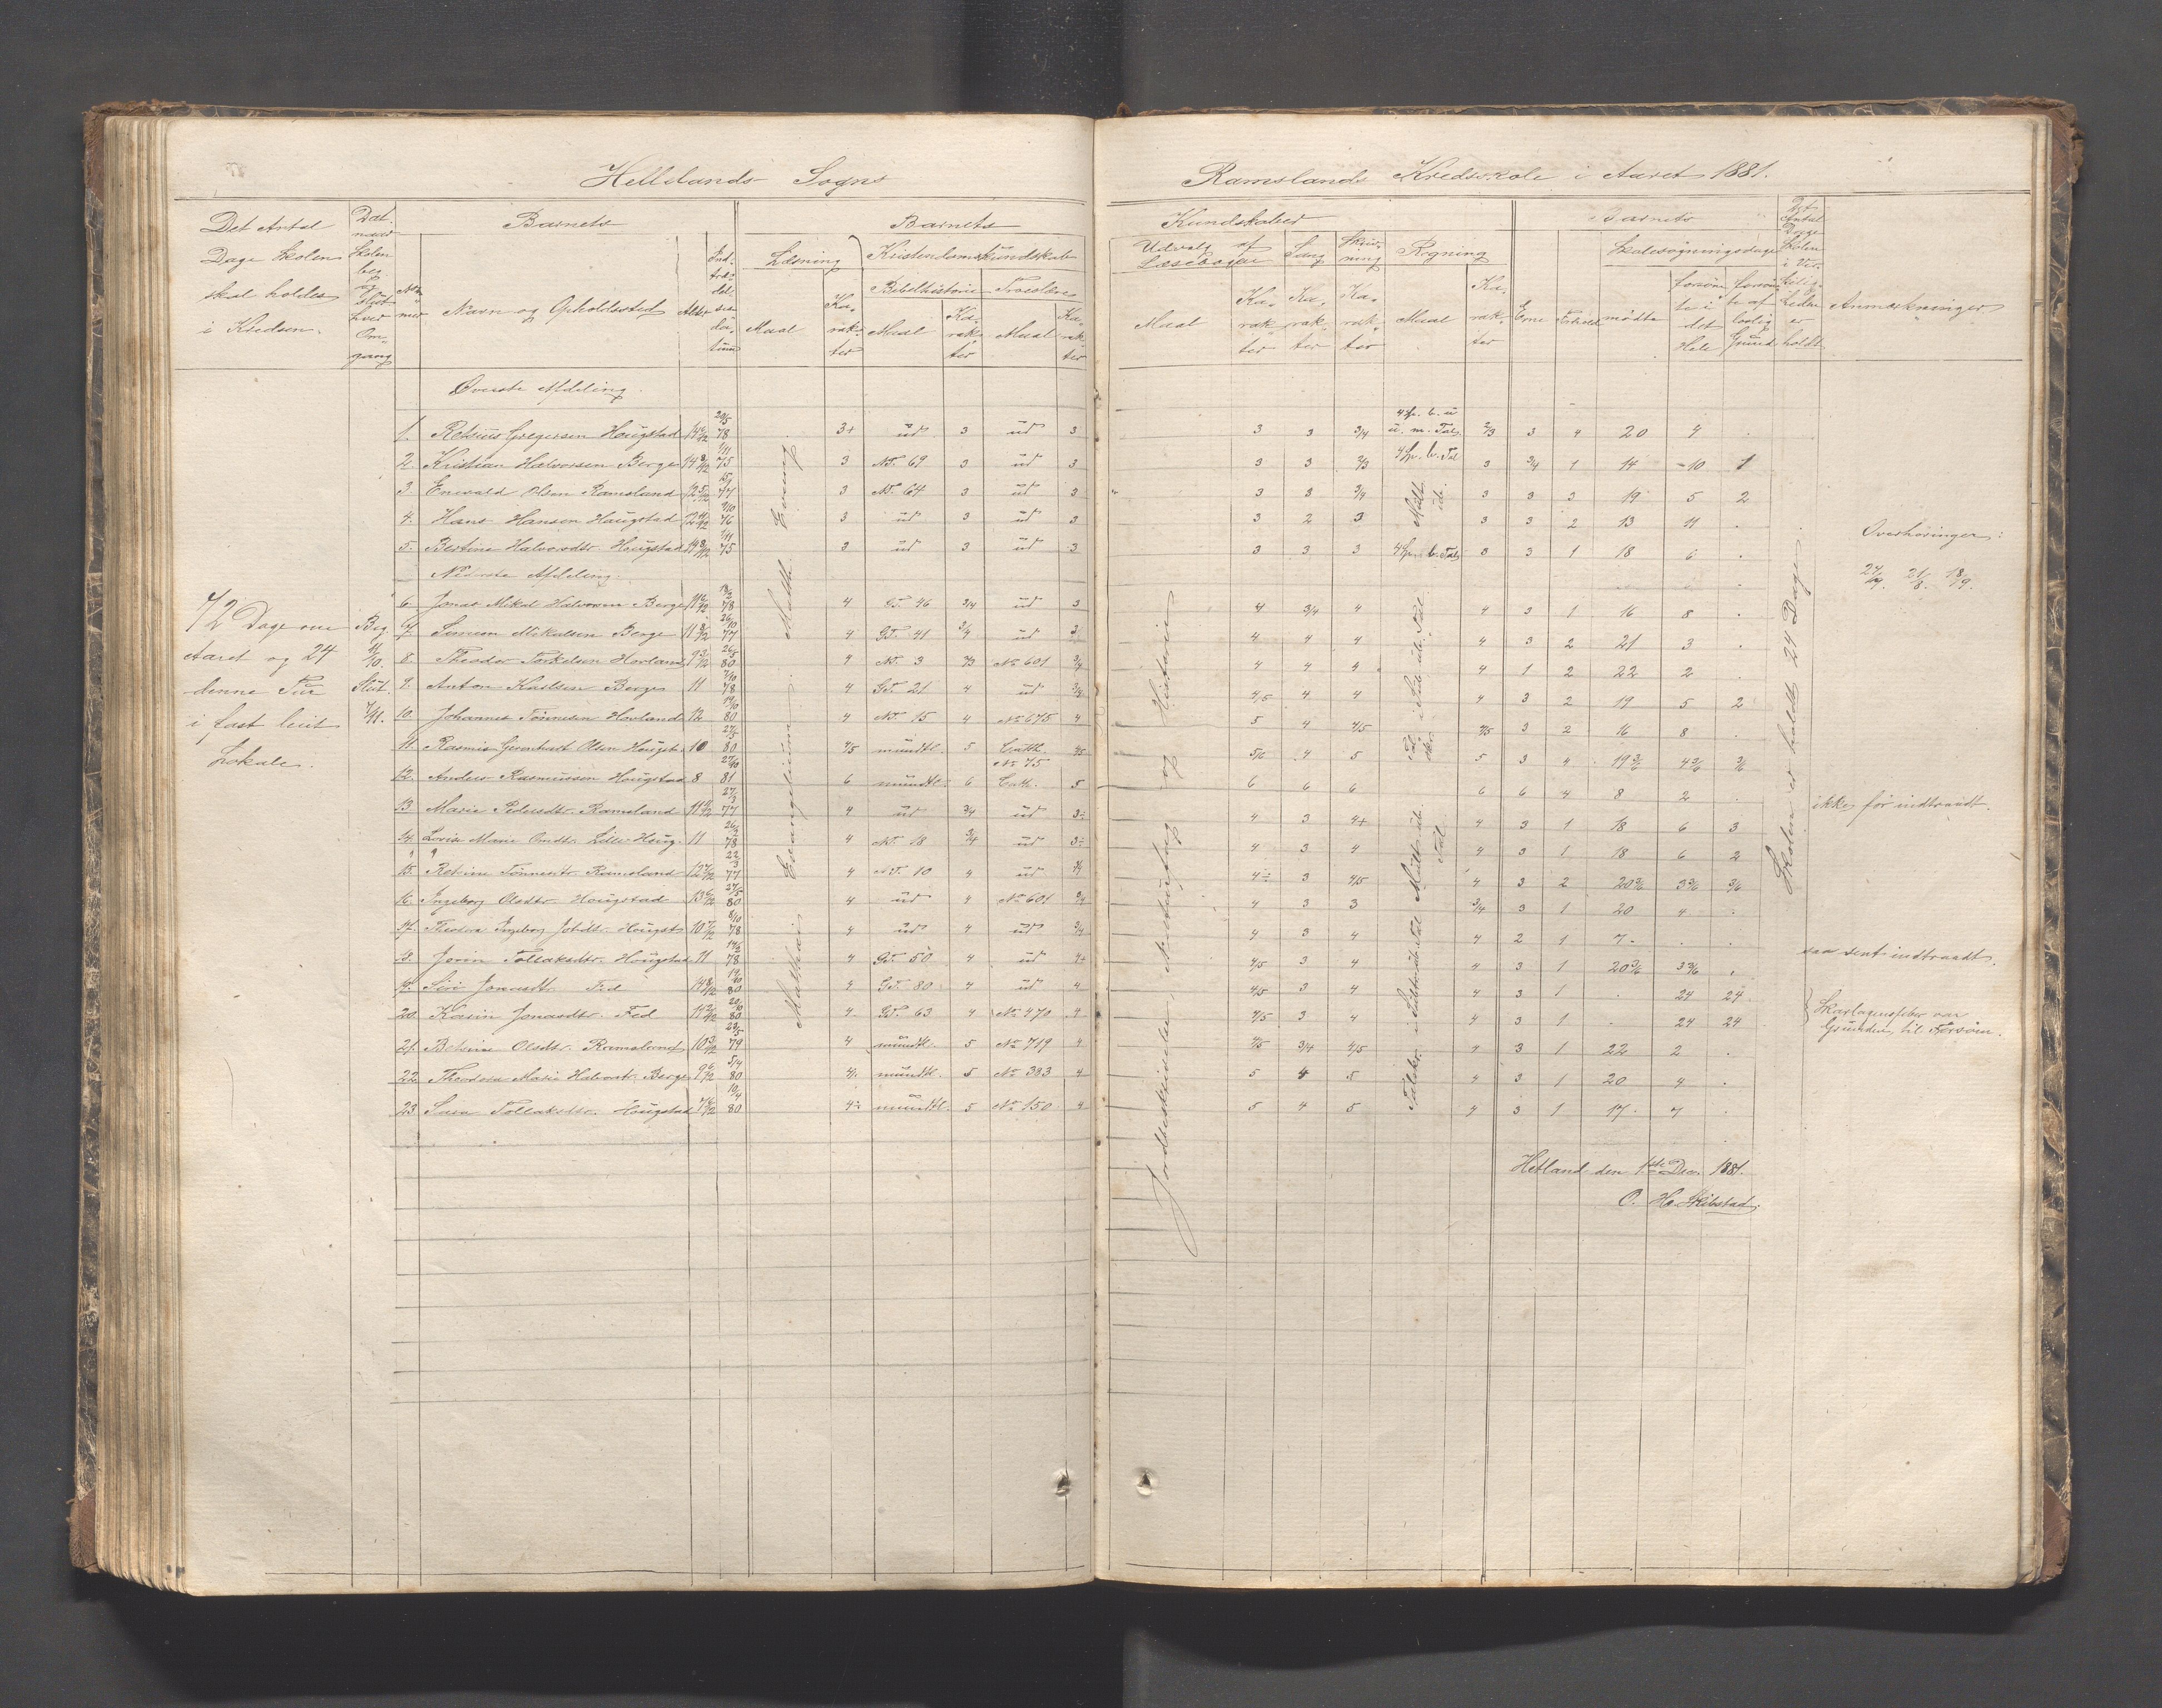 Hellelands Sogns
Ramslands Kredsskole i Aaret 1881.
Det Antal Dage Skolen skal holdes i Kredsen.
Dat. naar Skolen beg. og slut. hver Omgang
Barnets
Navn og Opholdssted
Alder
Indtrædelsesdatum
Barnets
Læsning
Kristendomskundskab
Bibelhistorie
Troeslære
Maal
Karakter
Maal
Karakter
Maal
Karakter
Kundskaber
Udvalg af Læsebogen
Sang
Skrivning
Regning
Maal
Karakter
Karakter
Karakter
Maal
Karakter
Barnets
Evne
Forhold
Skolesøgningsdage
mødte
forsømte i det Hele
forsømte af lovlig Grund
Det Antal Dage Skolen i Virkeligheden er holdt
Anmærkninger
72 Dage om Aaret og 24 denne Tur i fast leiet Lokale.
Beg. 11/10. Slut. 7/11.
Øverste Afdeling.
1. Retsius Gregersen Hougstad 20/5 78 3+ ud 3 ud 3 3 3 3/4 4 Sp. b. u. u. m. Tal 2/3 3 4 20 4 .
2. Kristian Halvorsen Berge 14 8/12 1/11 75 3 N.T. 69 3 ud 3 3 3 2/3 4 Sp. b. Tal 3 3/4 1 14 10 1
3. Enevald Olsen Ramsland 12 5/12 77 3 N.T. 64 3 ud 3 3 3 3/4 3 3 3 19 5 2
4. Hans Hansen Haugstad 76 3 ud 3 ud 3 3 2 3 3 3 2 13 11 .
5. Bertine Halvordtr. Hougstad 14 8/12 1/11 75 3 ud 3 ud 3 3 3 3 4 Sp. b. Tal 3 3 1 18 6 .
Nederste Afdeling.
6. Jonas Mikal Halvorsen Berge 78 4 G.T. 46 3/4 ud 3 4 3/4 4 4 3 1 16 8 .
7. Simon Mikalsen Berge 26/10 77 4 G.T. 41 3/4 ud 4 4 4 4 3 2 21 3 .
8. Theodor Torkelsen Hovland 9 3/12 26/5 80 4 N.T. 3 No 601 3/4 4 4 4 4 1 2 22 2 .
9. Anton Karlsen Berge 11 7/10 78 4 G.T. 21 4 ud 3/4 4/5 4 4 4 3 2 19 5 2
10. Johannes Tønnesen Hovland 12 19/10 80 4 N.T. 15 4 No 675 4 5 4 4/5 4/5 3 2 16 8 .
11. Rasmus Gerenhardt Olsen Hougst. 10 27/5 80 4/5 mundtl. 5 Cath. No 75 4/5 5/6 4 5 5 3 4 19 3/6 4 3/6 3/6
12. Anders Rasmussen Hougstad 8 27/10 81 6 mundtl. 6 Cath. 5 6 6 6 6 6 4 8 2 . ikke før indtraadt.
13. Marie Pedersdtr. Ramsland 27/3 77 4 ud 3/4 ud 3÷ 4 3 4+ 4 3 1 18 6 3
14. Lovise Marie Omdtr. Lille-Houg. 11 26/2 78 4 N.T. 18 3/4 ud 3÷ 4 3 4 4 3 1 18 6 2
15. Retine Tønnesdtr. Ramsland 12 7/12 22/3 77 4 N.T. 10 4 ud 4÷ 3 4/5 4 3 2 20 3/6 3 3/6 3/6
16. Ingeborg Olsdtr. Hougstad 13 6/12 27/5 80 4 ud 4 No 601 3/4 4 3 3 3/4 3 1 20 4 .
17. Theodora Ingeborg Hougst. 10 7/12 8/10 78 4 ud 4 ud 3/4 4 3 4 4 2 1 7 . . saa sent indtraadt.
18. Jorin Tollaksdtr. Hougstad 11 78 4 G.T. 50 4 ud 4+ 4/5 3 4 4 3 1 20 3/6 3 3/6 .
19. Siri Jonasdtr. Fed 14 8/12 19/10 80 4 G.T. 80 4 ud 4 4/5 3 4 4 3 1 . 24 24
20. Karin Jonasdtr. Fed 11 2/12 20/10 80 4 G.T. 63 4 No 470 4 4/5 3 4 4 3 1 . 24 24
Skarlagensfeber var Grunden til Forsøm.
21. Betsine Olsdtr. Ramsland 10 3/12 79 4 mundtl. 5 No 719 4 4/5 3/4 4/5 4 3 1 22 2 .
22. Theodora Marie Halvordt. Berge 9 6/12 5/4 80 4 mundtl. 5 No 383 4 5 4 5 4 3 1 20 4 .
23. Sara Tollaksdtr. Hougstad 10/4 80 4÷ mundtl. 5 No 150 4 5 4 5 4 3 1 17 7 .
Matthæi Evangelium. Matth. Evang.
Jordbeskrivelse, Naturfag og Historie
Skolen er holdt 24 Dage.
Overhøringer:
Hetland den 1ste Dec. 1881.
O. H. Skibstad.